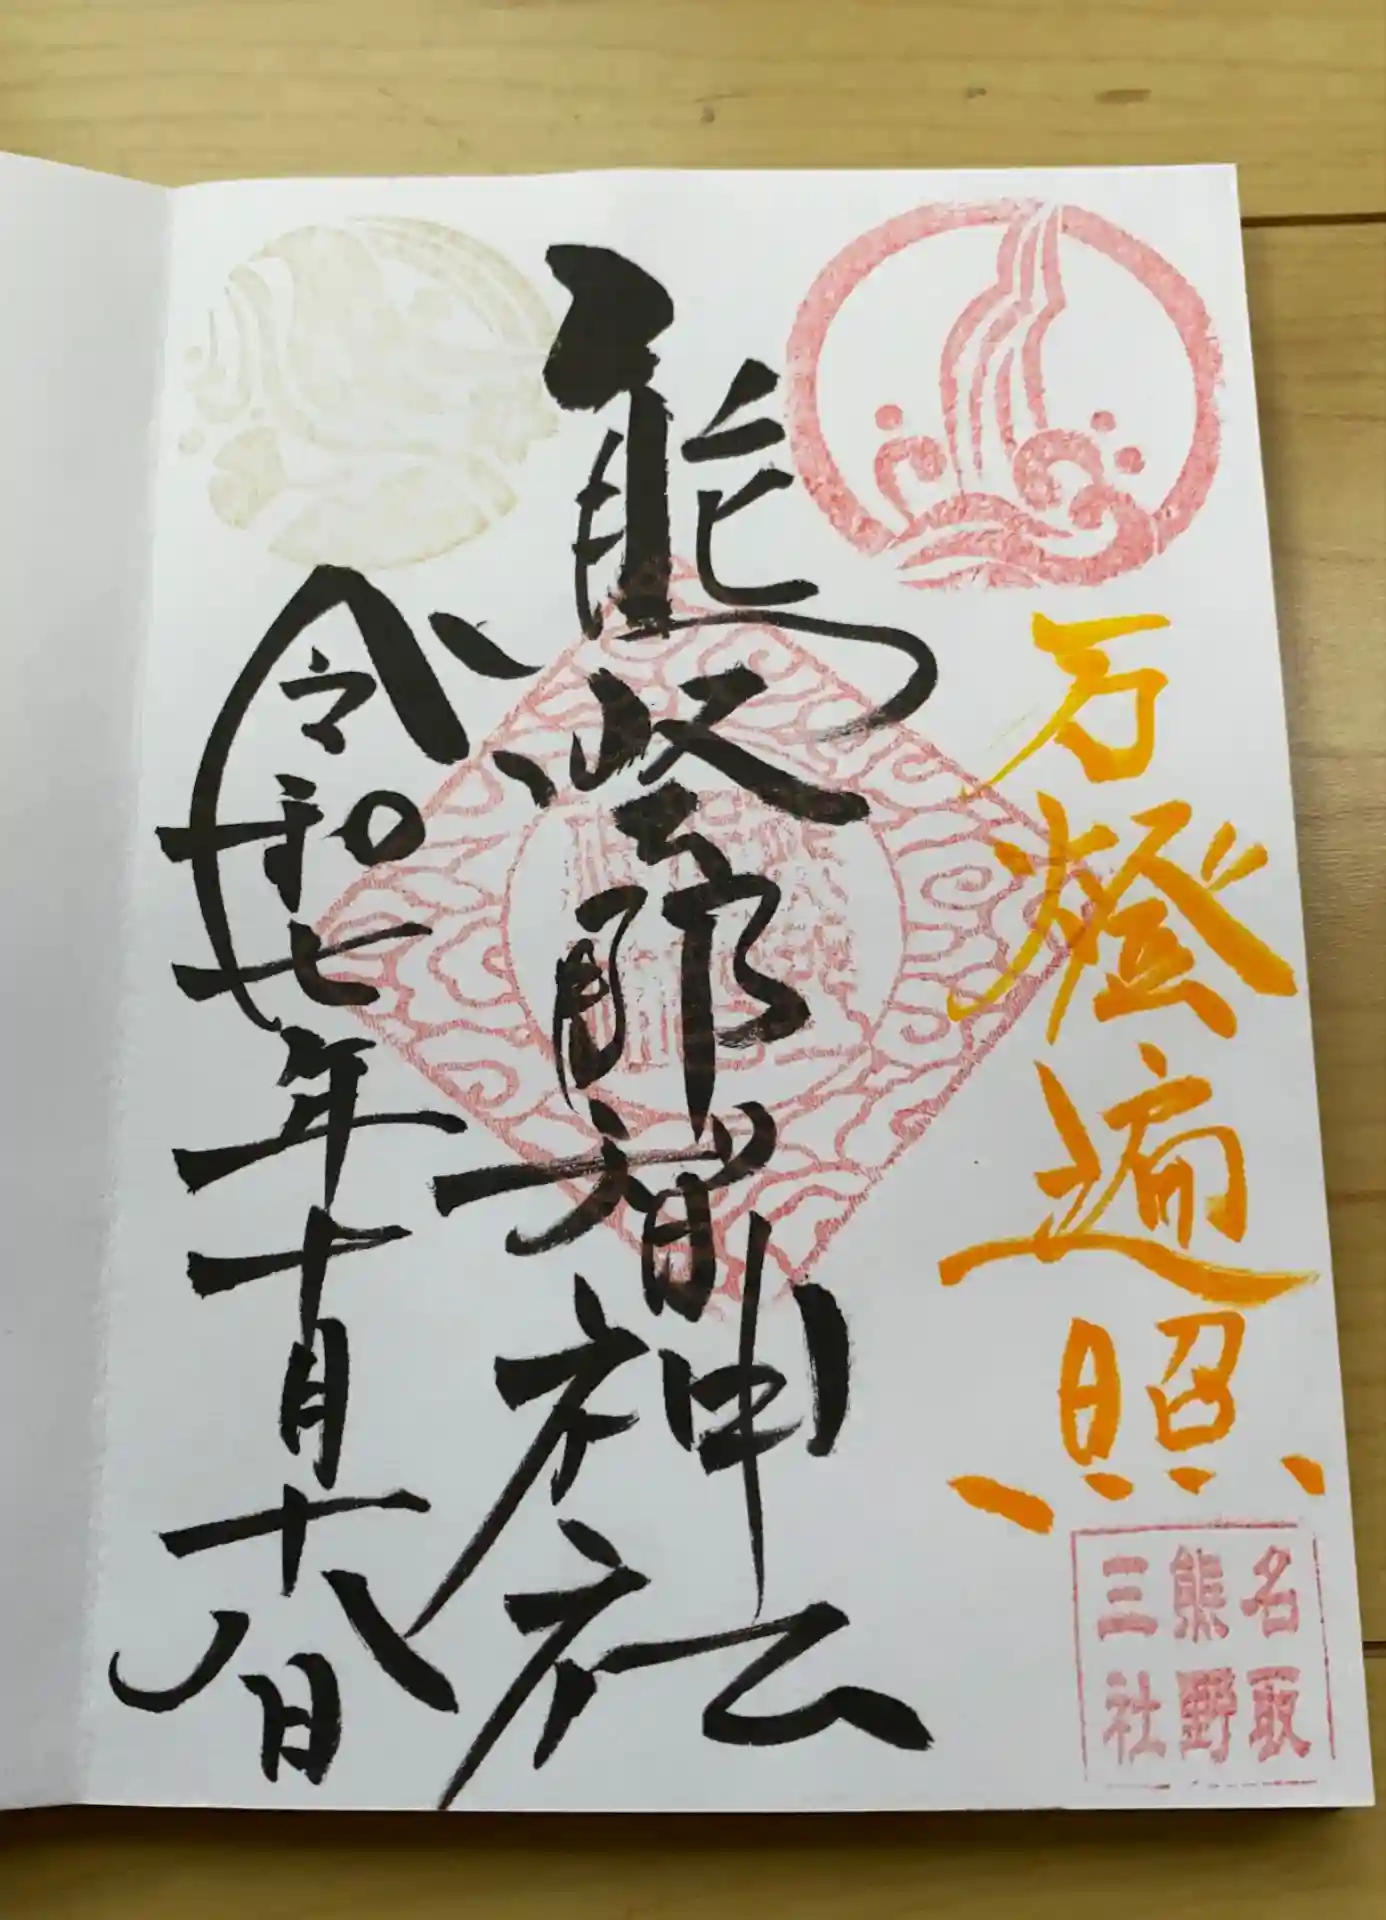 万燈遍照
名取
熊野
三社
熊野那智神社
令和七年十月十八日